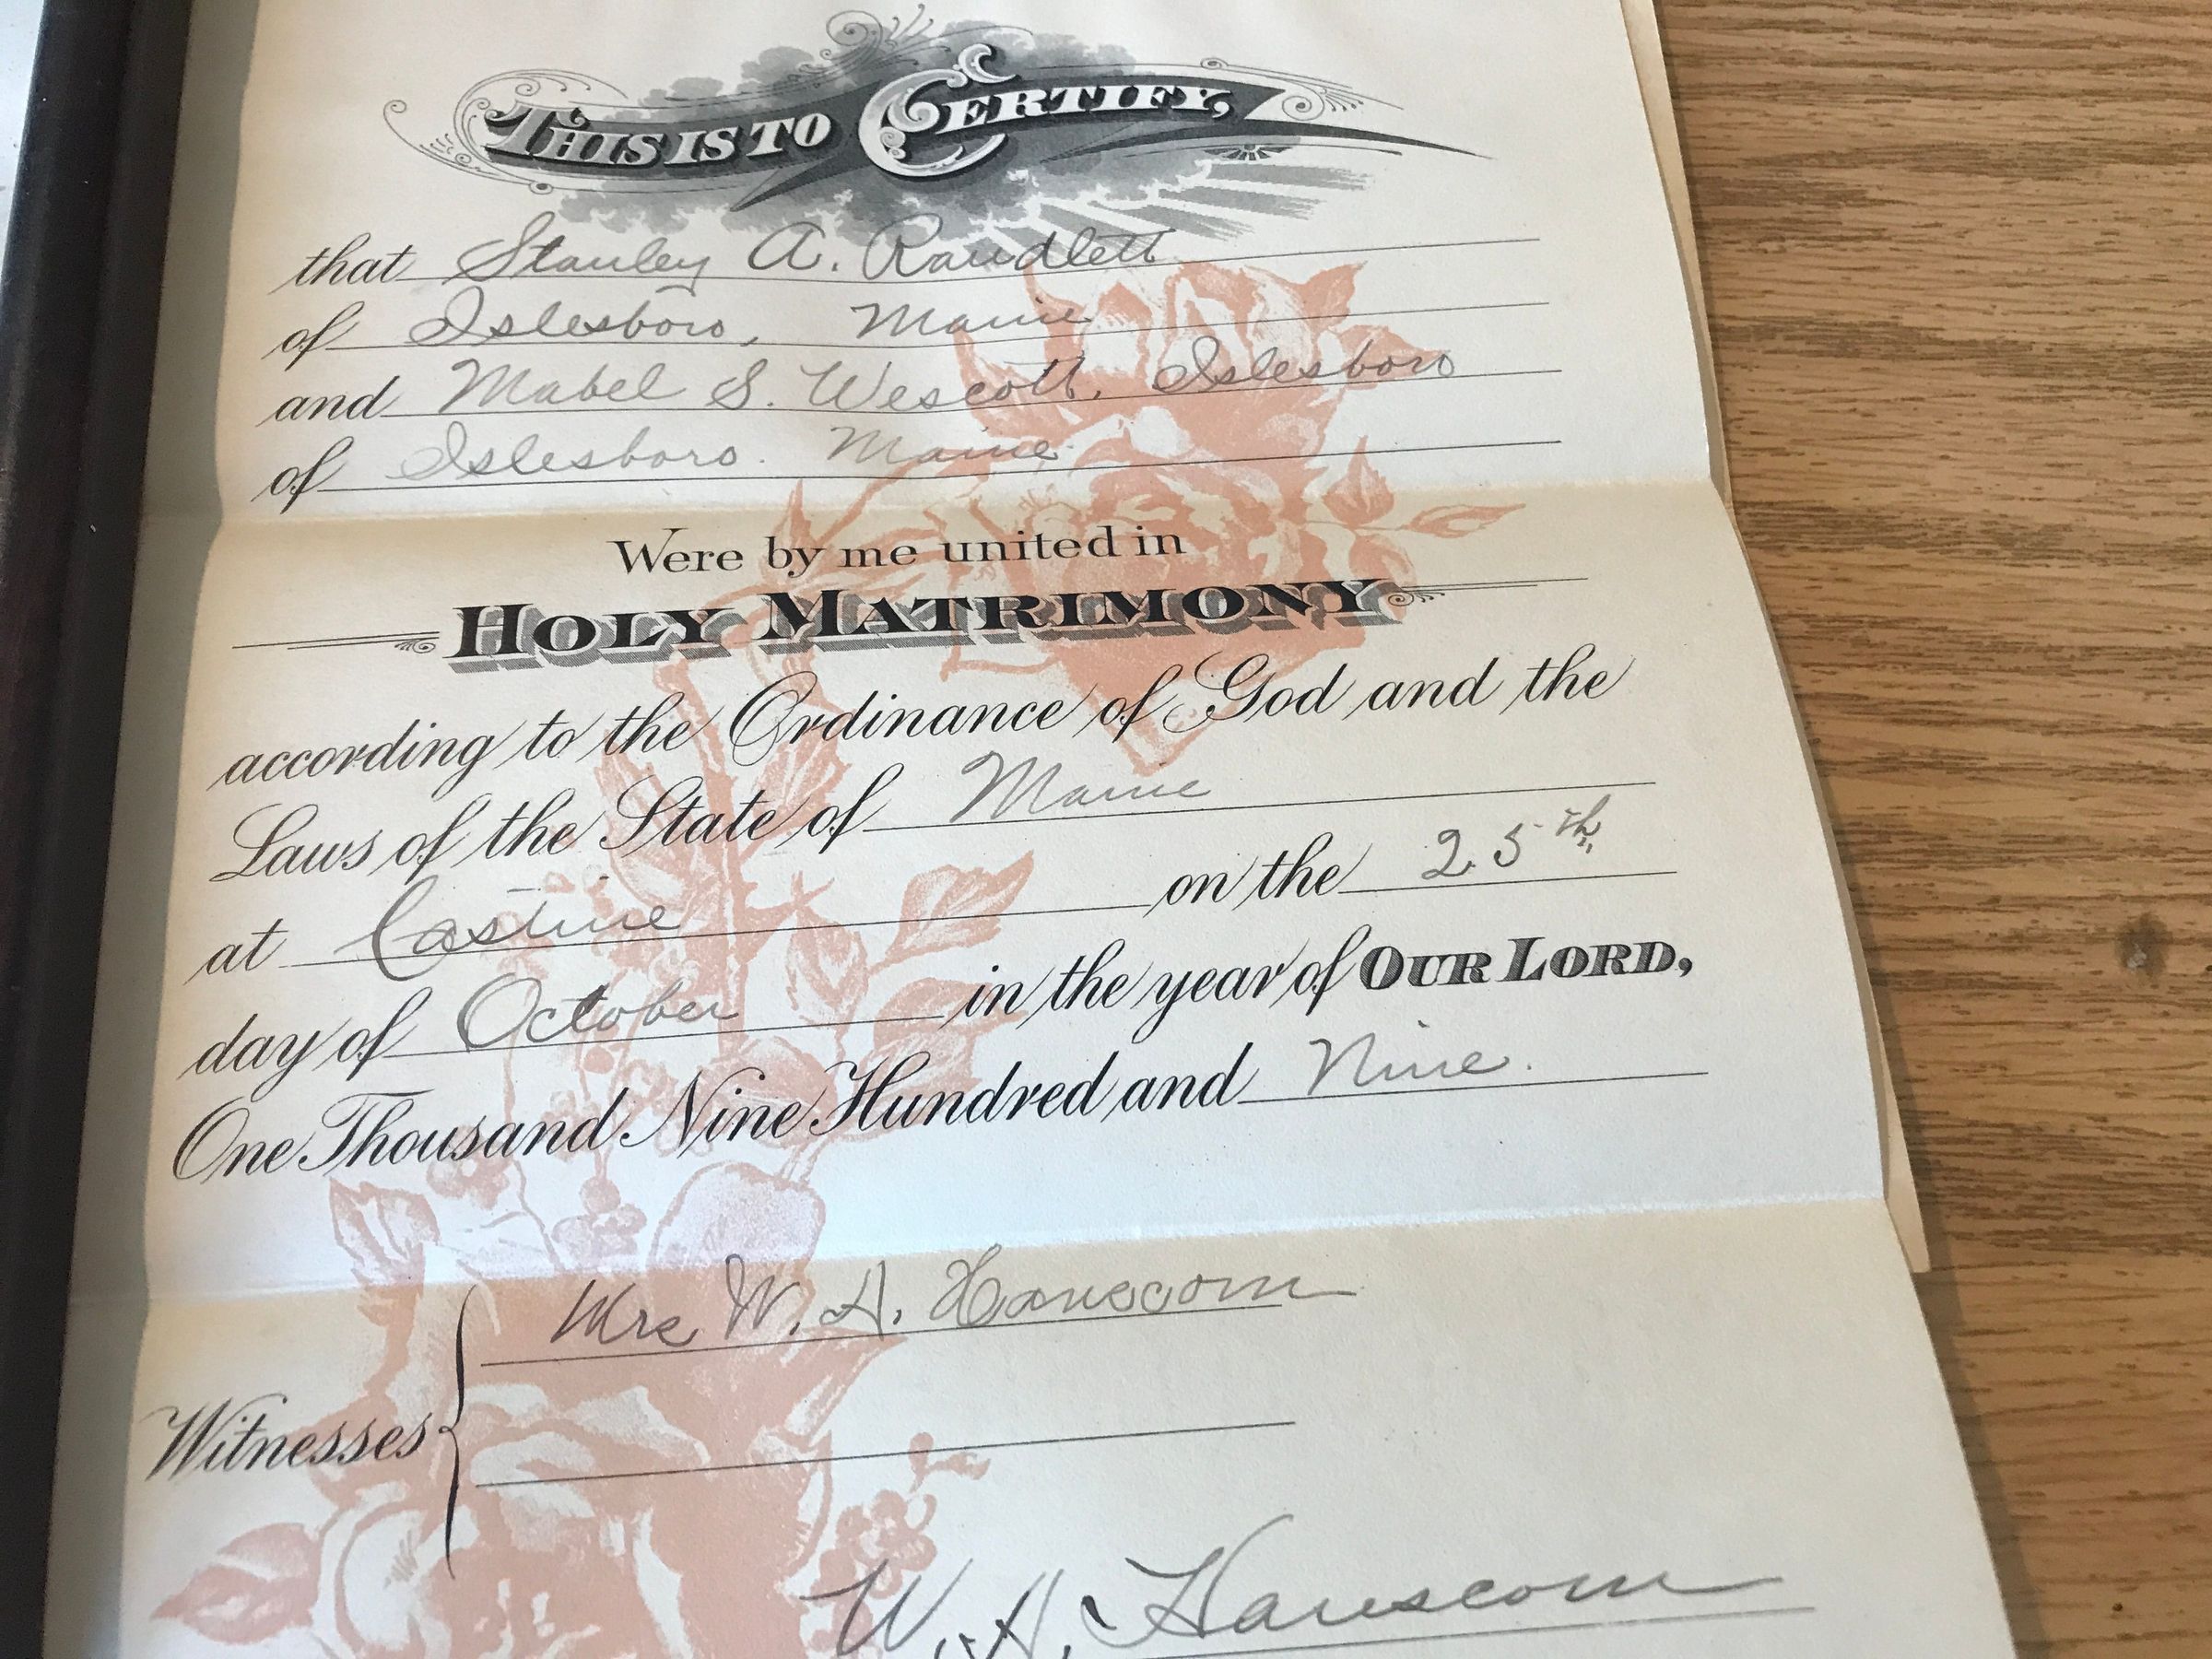 THIS IS TO CERTIFY,
that Stanley A. Randlett
of Islesboro, Maine
and Mabel S. Wescott, Islesboro
of Islesboro. Maine
Were by me united in
HOLY MATRIMONY
according to the Ordinance of God and the
Laws of the State of Maine
at Castine on the 25th
day of October in the year of OUR LORD,
One Thousand Nine Hundred and Nine.
Mrs W. H. Hanscom
Witnesses
W. H. Hanscom